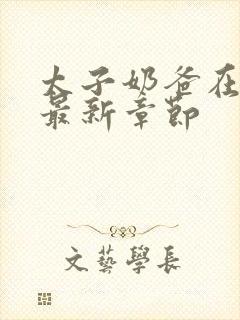 太子奶爸在
最新章節
文藝學長